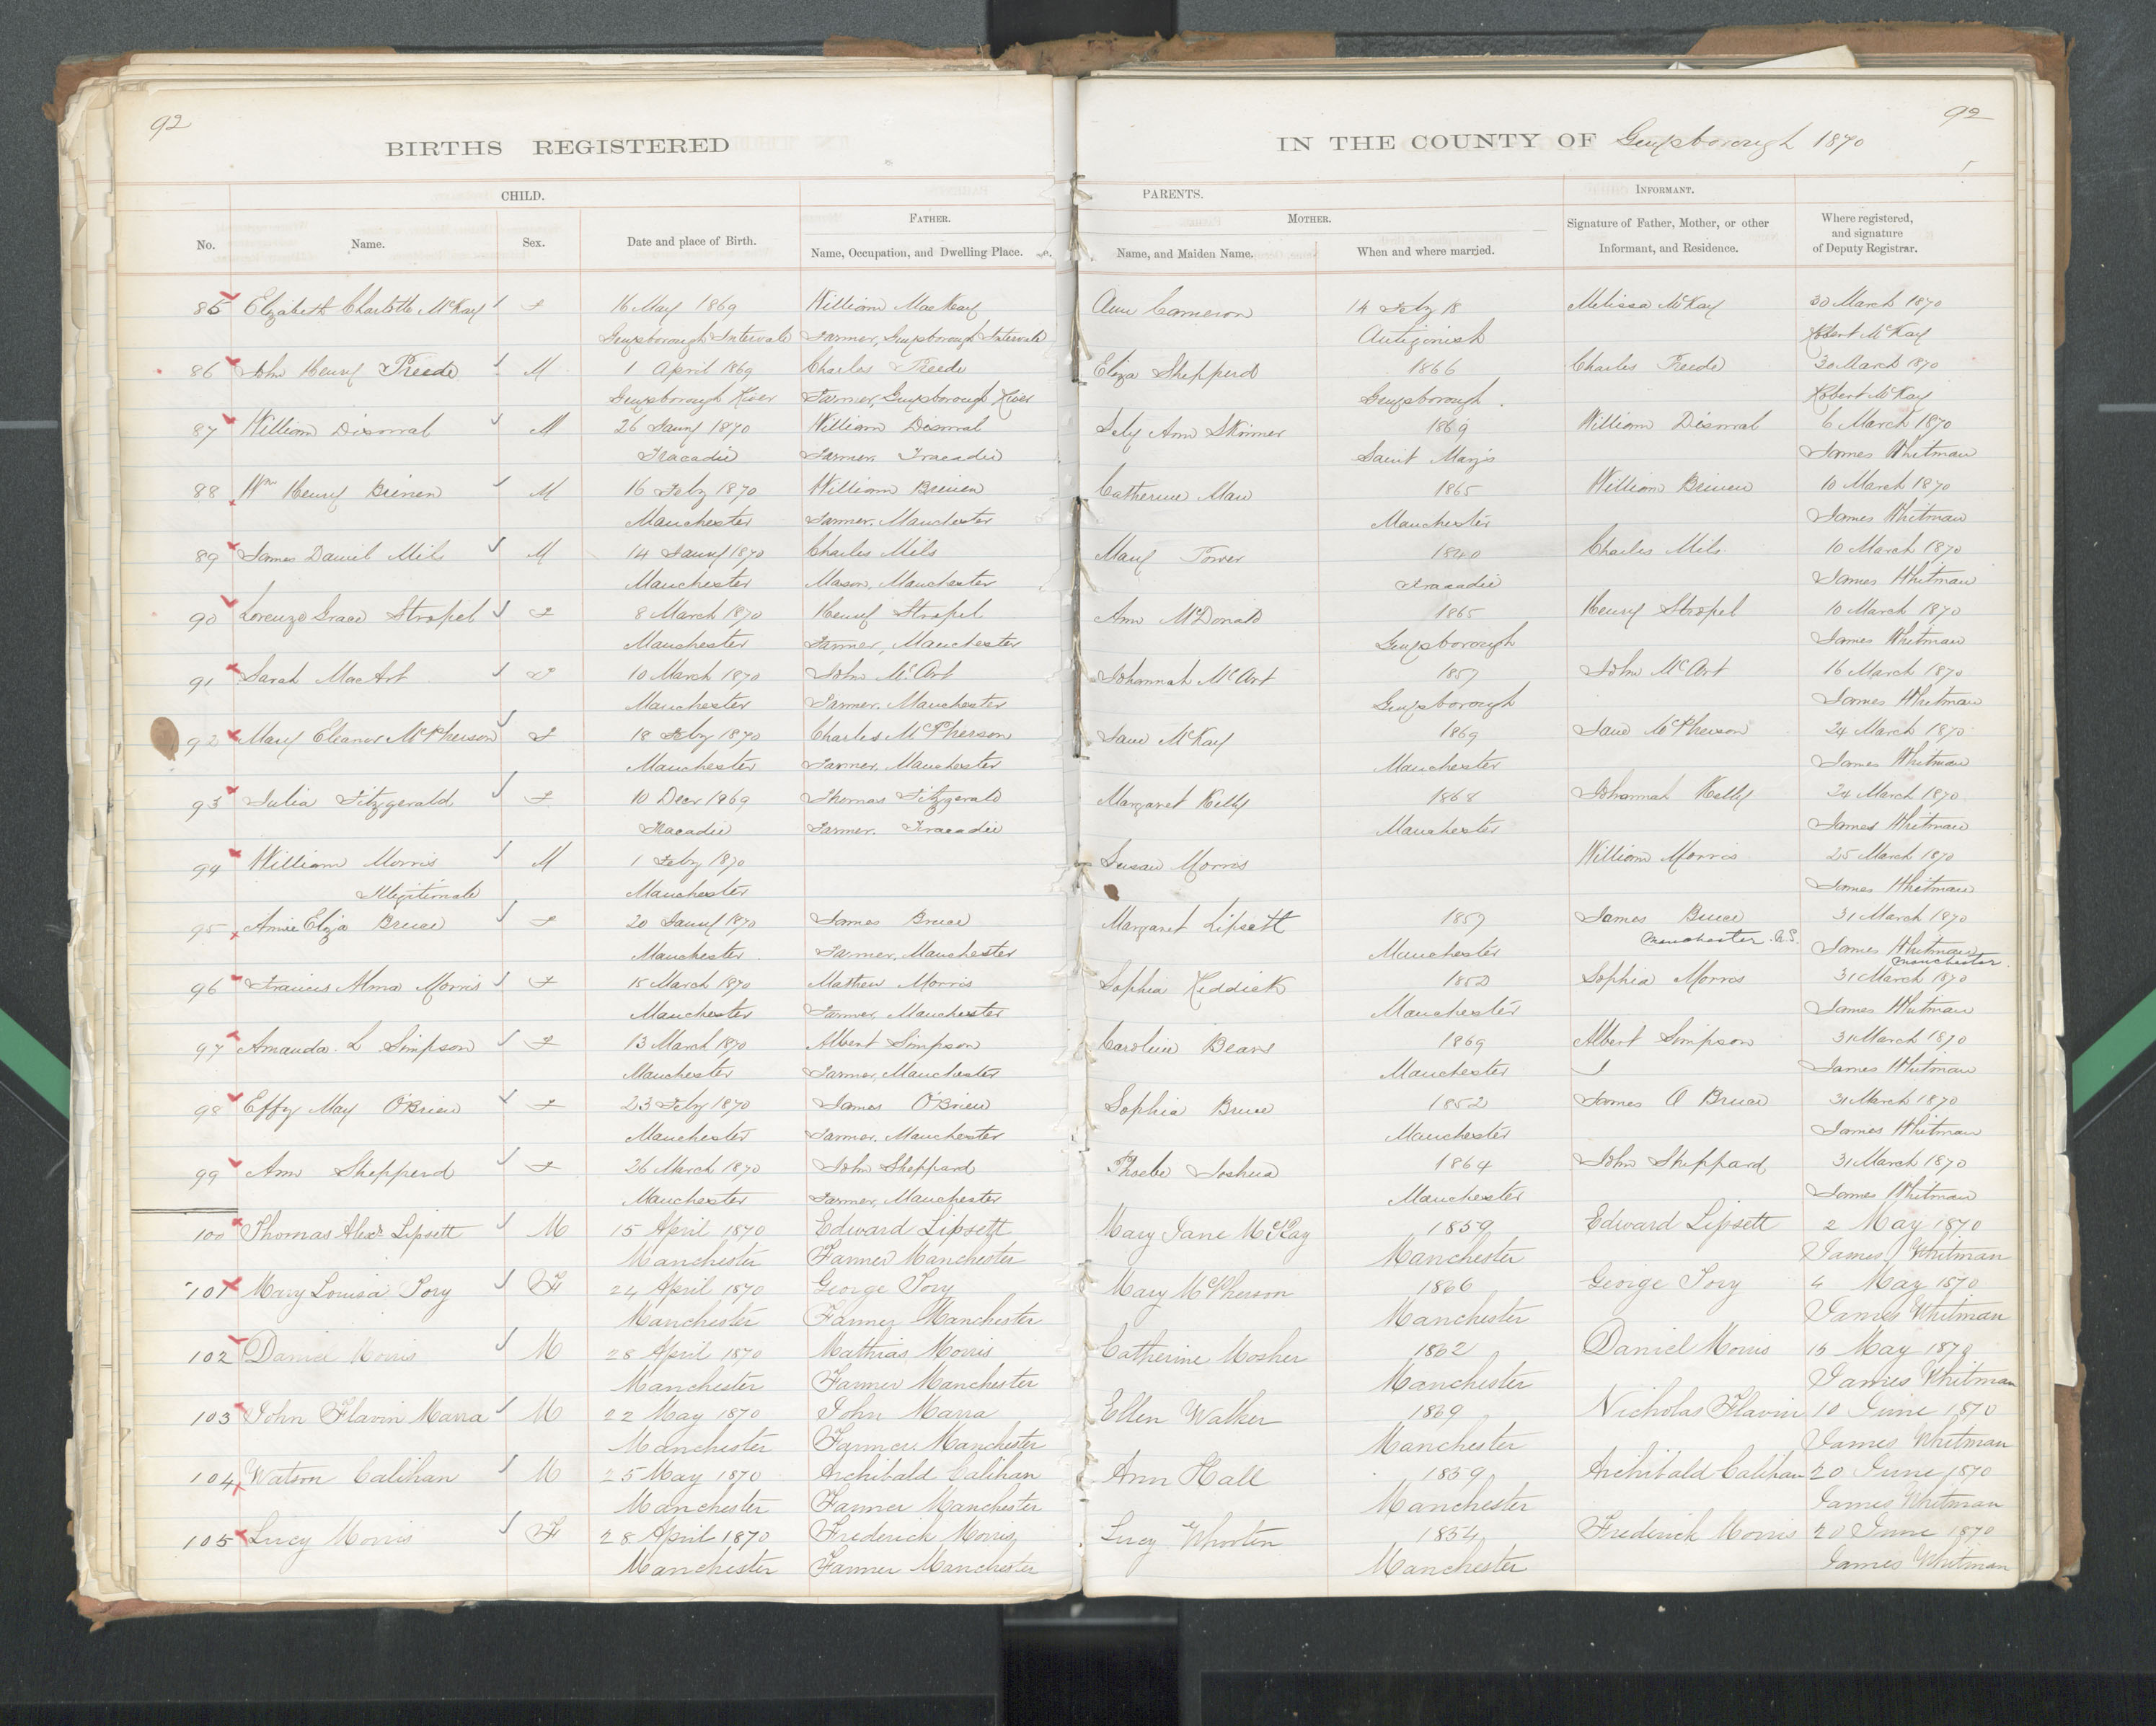 92
92
BIRTHS REGISTERED
IN THE COUNTY OF Guysborough 1870
CHILD.
PARENTS.
INFORMANT.
No.
Name.
Sex.
Date and place of Birth.
FATHER.
Name, Occupation, and Dwelling Place.
MOTHER.
Name, and Maiden Name.
When and where married.
Signature of Father, Mother, or other
Informant, and Residence.
Where registered,
and signature
of Deputy Registrar.
85 Elizabeth Charlotte McKay F 16 May 1869 William MacKay Ann Cameron 14 Feby 18 Melissa McKay 30 March 1870
Guysborough Intervale Farmer, Guysborough Intervale Antigonish Robert McKay
86 John Henry Freede M 1 April 1869 Charles Freede Eliza Shepperd 1866 Charles Freede 30 March 1870
Guysborough River Farmer, Guysborough River Guysborough Robert McKay
87 William Dismal M 26 Jany 1870 William Dismal Sely Ann Skinner 1869 William Dismal 6 March 1870
Tracadie Farmer Tracadie Saint Marys James Whitman
88 Wm Henry Brinen M 16 Feby 1870 William Brinen Catherine 1865 William Brinen 10 March 1870
Manchester Farmer, Manchester Manchester James Whitman
89 James Daniel Mils M 14 Jany 1870 Charles Mils Mary Power 1840 Charles Mils 10 March 1870
Manchester Mason, Manchester Tracadie James Whitman
90 Lorenzo Grace Stropel F 8 March 1870 Henry Stropel Ann McDonald 1865 Henry Stropel 10 March 1870
Manchester Farmer, Manchester Guysborough James Whitman
91 Sarah MacArt F 10 March 1870 John McArt Johannah McArt 1857 John McArt 16 March 1870
Manchester Farmer, Manchester Guysborough James Whitman
92 Mary Eleanor McPherson F 18 Feby 1870 Charles McPherson Jane McKay 1869 Jane McPherson 24 March 1870
Manchester Farmer, Manchester Manchester James Whitman
93 Julia Fitzgerald F 10 Decr 1869 Thomas Fitzgerald Margaret Kelly 1868 Johannah Kelly 24 March 1870
Tracadie Farmer. Tracadie Manchester James Whitman
94 William Morris M 1 Feby 1870 Susan Morris William Morris 25 March 1870
Illegitimate Manchester James Whitman
95 Annie Eliza Bruce F 20 Jany 1870 James Bruce Margaret Lipsett 1857 James Bruce 31 March 1870
Manchester Farmer, Manchester Manchester Manchester James Whitman
Manchester
96 Francis Alma Morris F 15 March 1870 Mathew Morris Sophia Reddick 1852 Sophia Morris 31 March 1870
Manchester Farmer, Manchester Manchester James Whitman
97 Amanda L Simpson F 13 March 1870 Albert Simpson Caroline Beans 1869 Albert Simpson 31 March 1870
Manchester Farmer, Manchester Manchester James Whitman
98 Effy May O'Brien F 23 Feby 1870 James O'Brien Sophia Bruce 1852 James O Bruce 31 March 1870
Manchester Farmer, Manchester Manchester James Whitman
99 Ann Shepperd F 26 March 1870 John Sheppard Phoebe Joshua 1864 John Sheppard 31 March 1870
Manchester Farmer, Manchester Manchester James Whitman
100 Thomas Alexr Lipsett M 15 April 1870 Edward Lipsett Mary Jane McKay 1859 Edward Lipsett 2 May 1870
Manchester Farmer Manchester Manchester James Whitman
101 Mary Louisa Tory F 24 April 1870 George Tory Mary McPherson 1866 George Tory 4 May 1870
Manchester Farmer Manchester Manchester James Whitman
102 Daniel Morris M 28 April 1870 Mathias Morris Catherine Mosher 1862 Daniel Morris 15 May 1870
Manchester Farmer Manchester Manchester James Whitman
103 John Flavin Marra M 22 May 1870 John Marra Ellen Walker 1869 Nicholas Flavin 10 June 1870
Manchester Farmer Manchester Manchester James Whitman
104 Watson Calihan M 25 May 1870 Archibald Calihan Ann Hall 1859 Archibald Calihan 20 June 1870
Manchester Farmer Manchester Manchester James Whitman
105 Lucy Morris F 28 April 1870 Frederick Morris Lucy Whooten 1854 Frederick Morris 20 June 1870
Manchester Farmer Manchester Manchester James Whitman